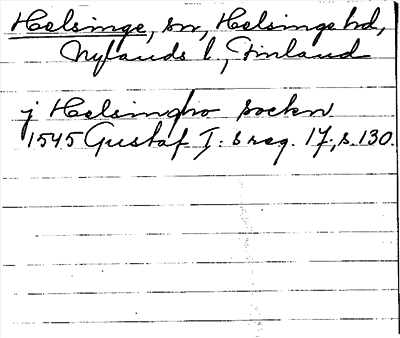 Helsinge, sn, Helsinge hd,
Nylands l., Finland
j Helsingho sockn
1545 Gustaf I:s reg. 17, s. 130.